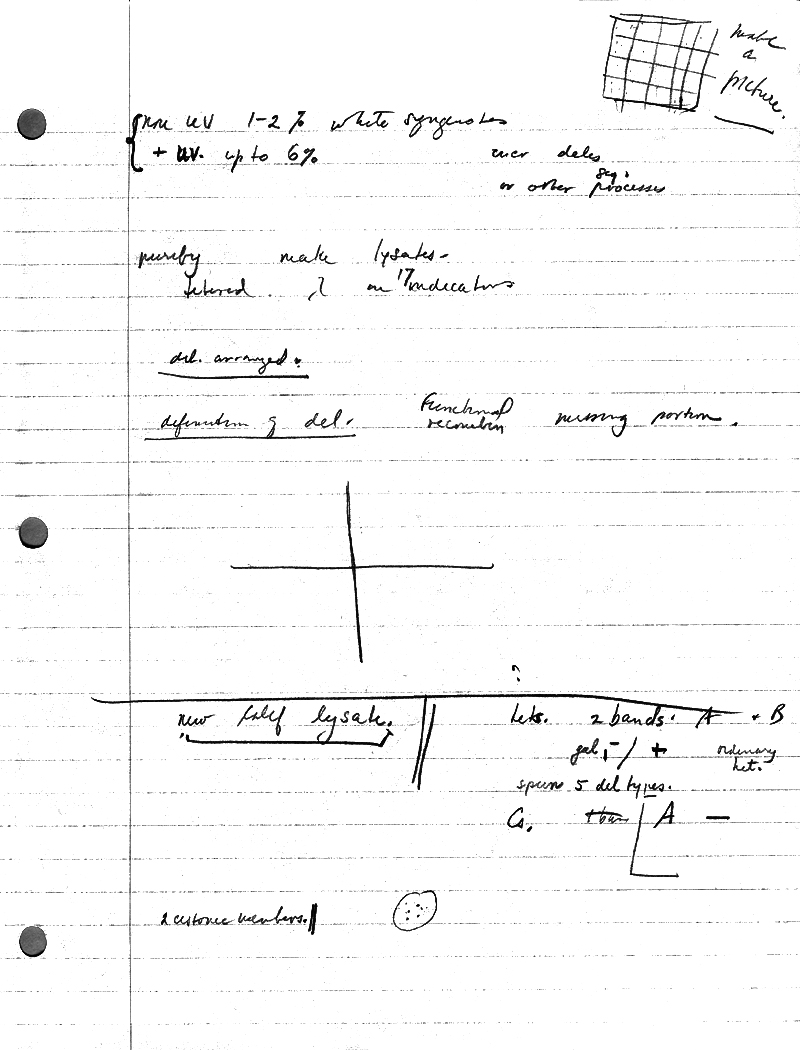 make
a
picture.
non UV 1-2 % white syngenotes
+ UV. up to 6%
dels
seq.
or other processes
purify make lysates-
λ on 17 indicators
del. arranged.
definition of del. Functional missing portion.
?
new lysate. hets. 2 bands. A + B
gal - / + ordinary
het.
5 del types.
Cs. A —
members.